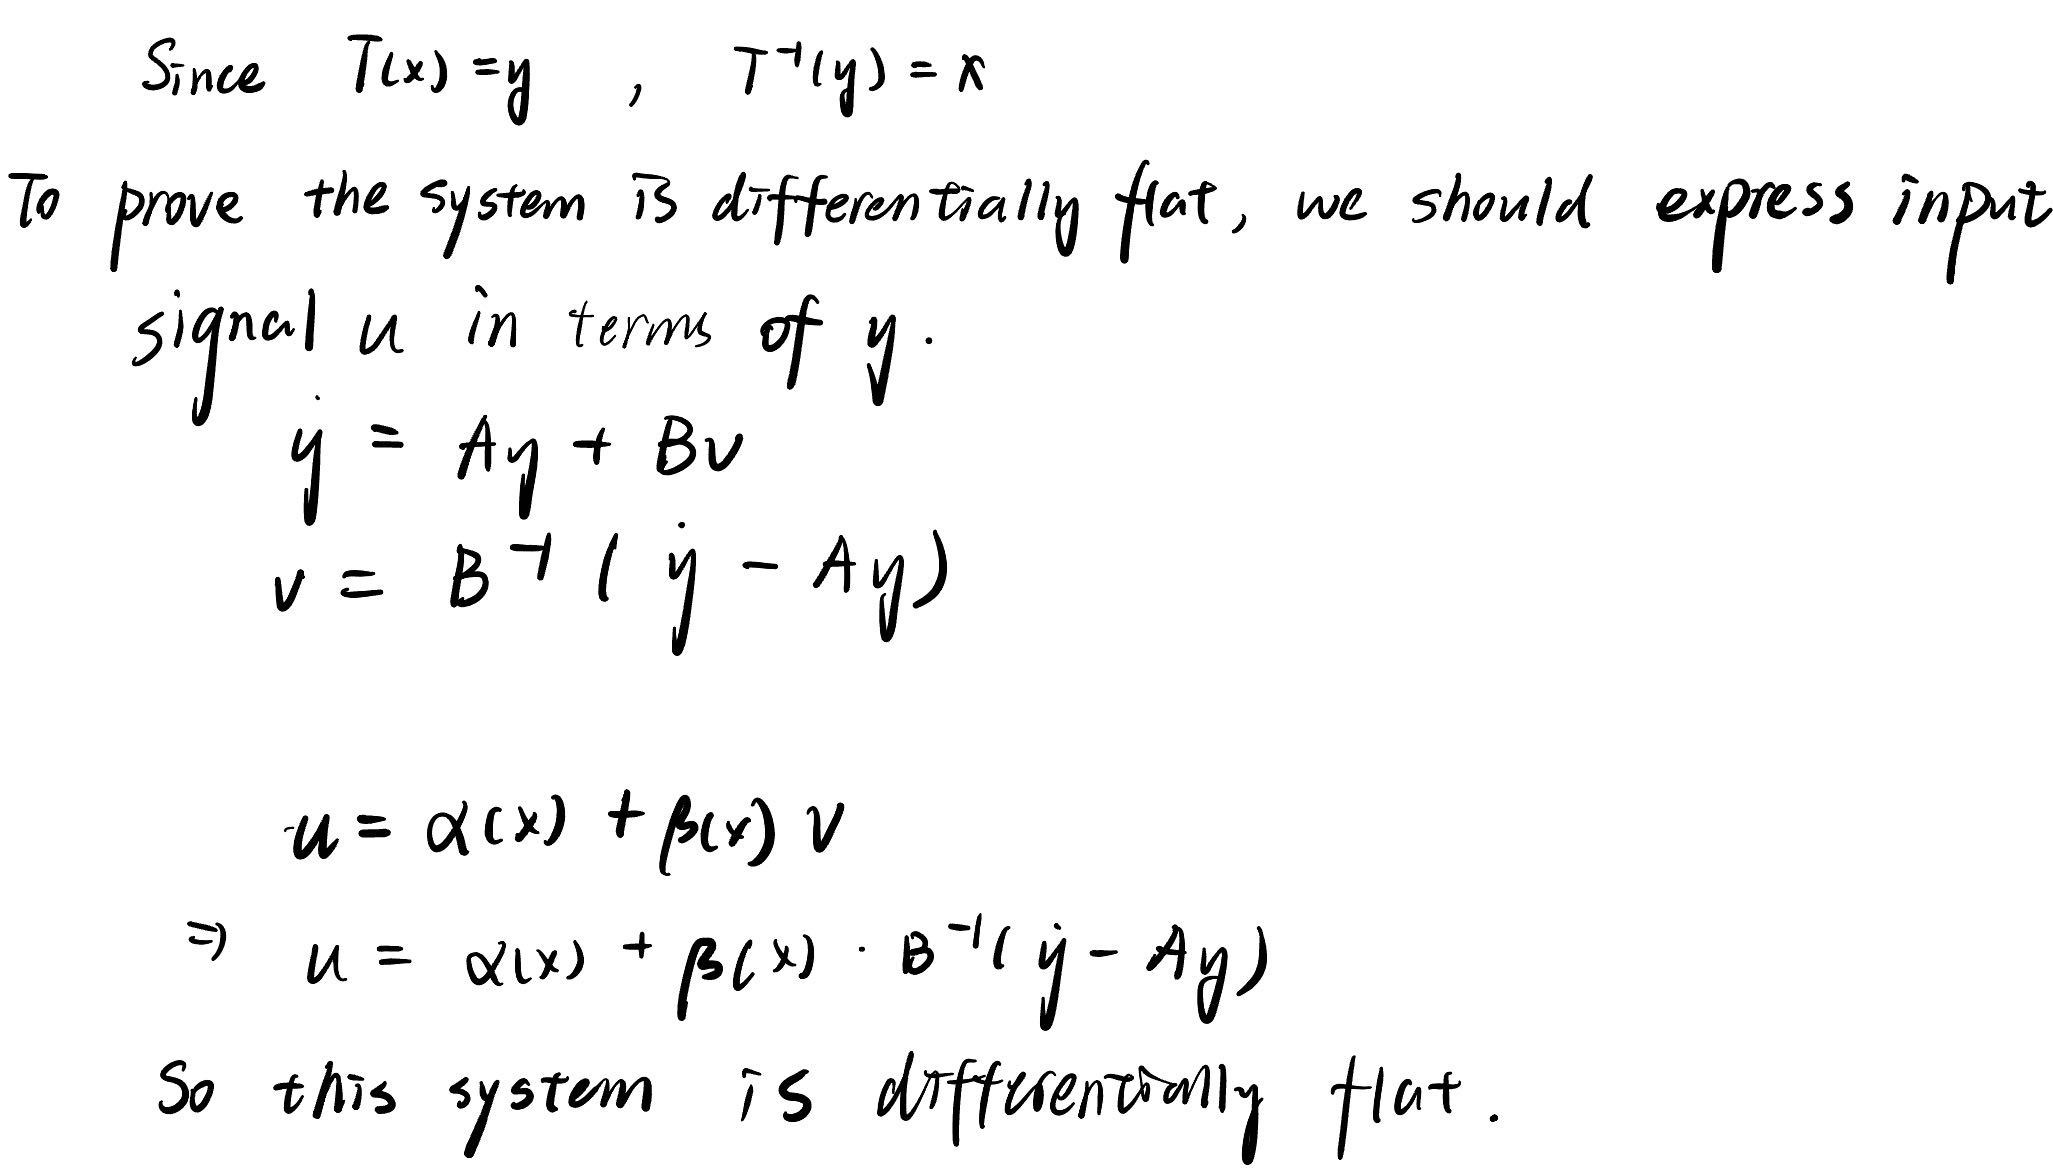 Since T(x) = y , T⁻¹(y) = x
To prove the system is differentially flat, we should express input
signal u in terms of y.
ẏ = Ay + Bv
v = B⁻¹ ( ẏ - Ay)
u = α(x) + β(x) v
⇒ u = α(x) + β(x) · B⁻¹( ẏ - Ay)
So this system is differentially flat.